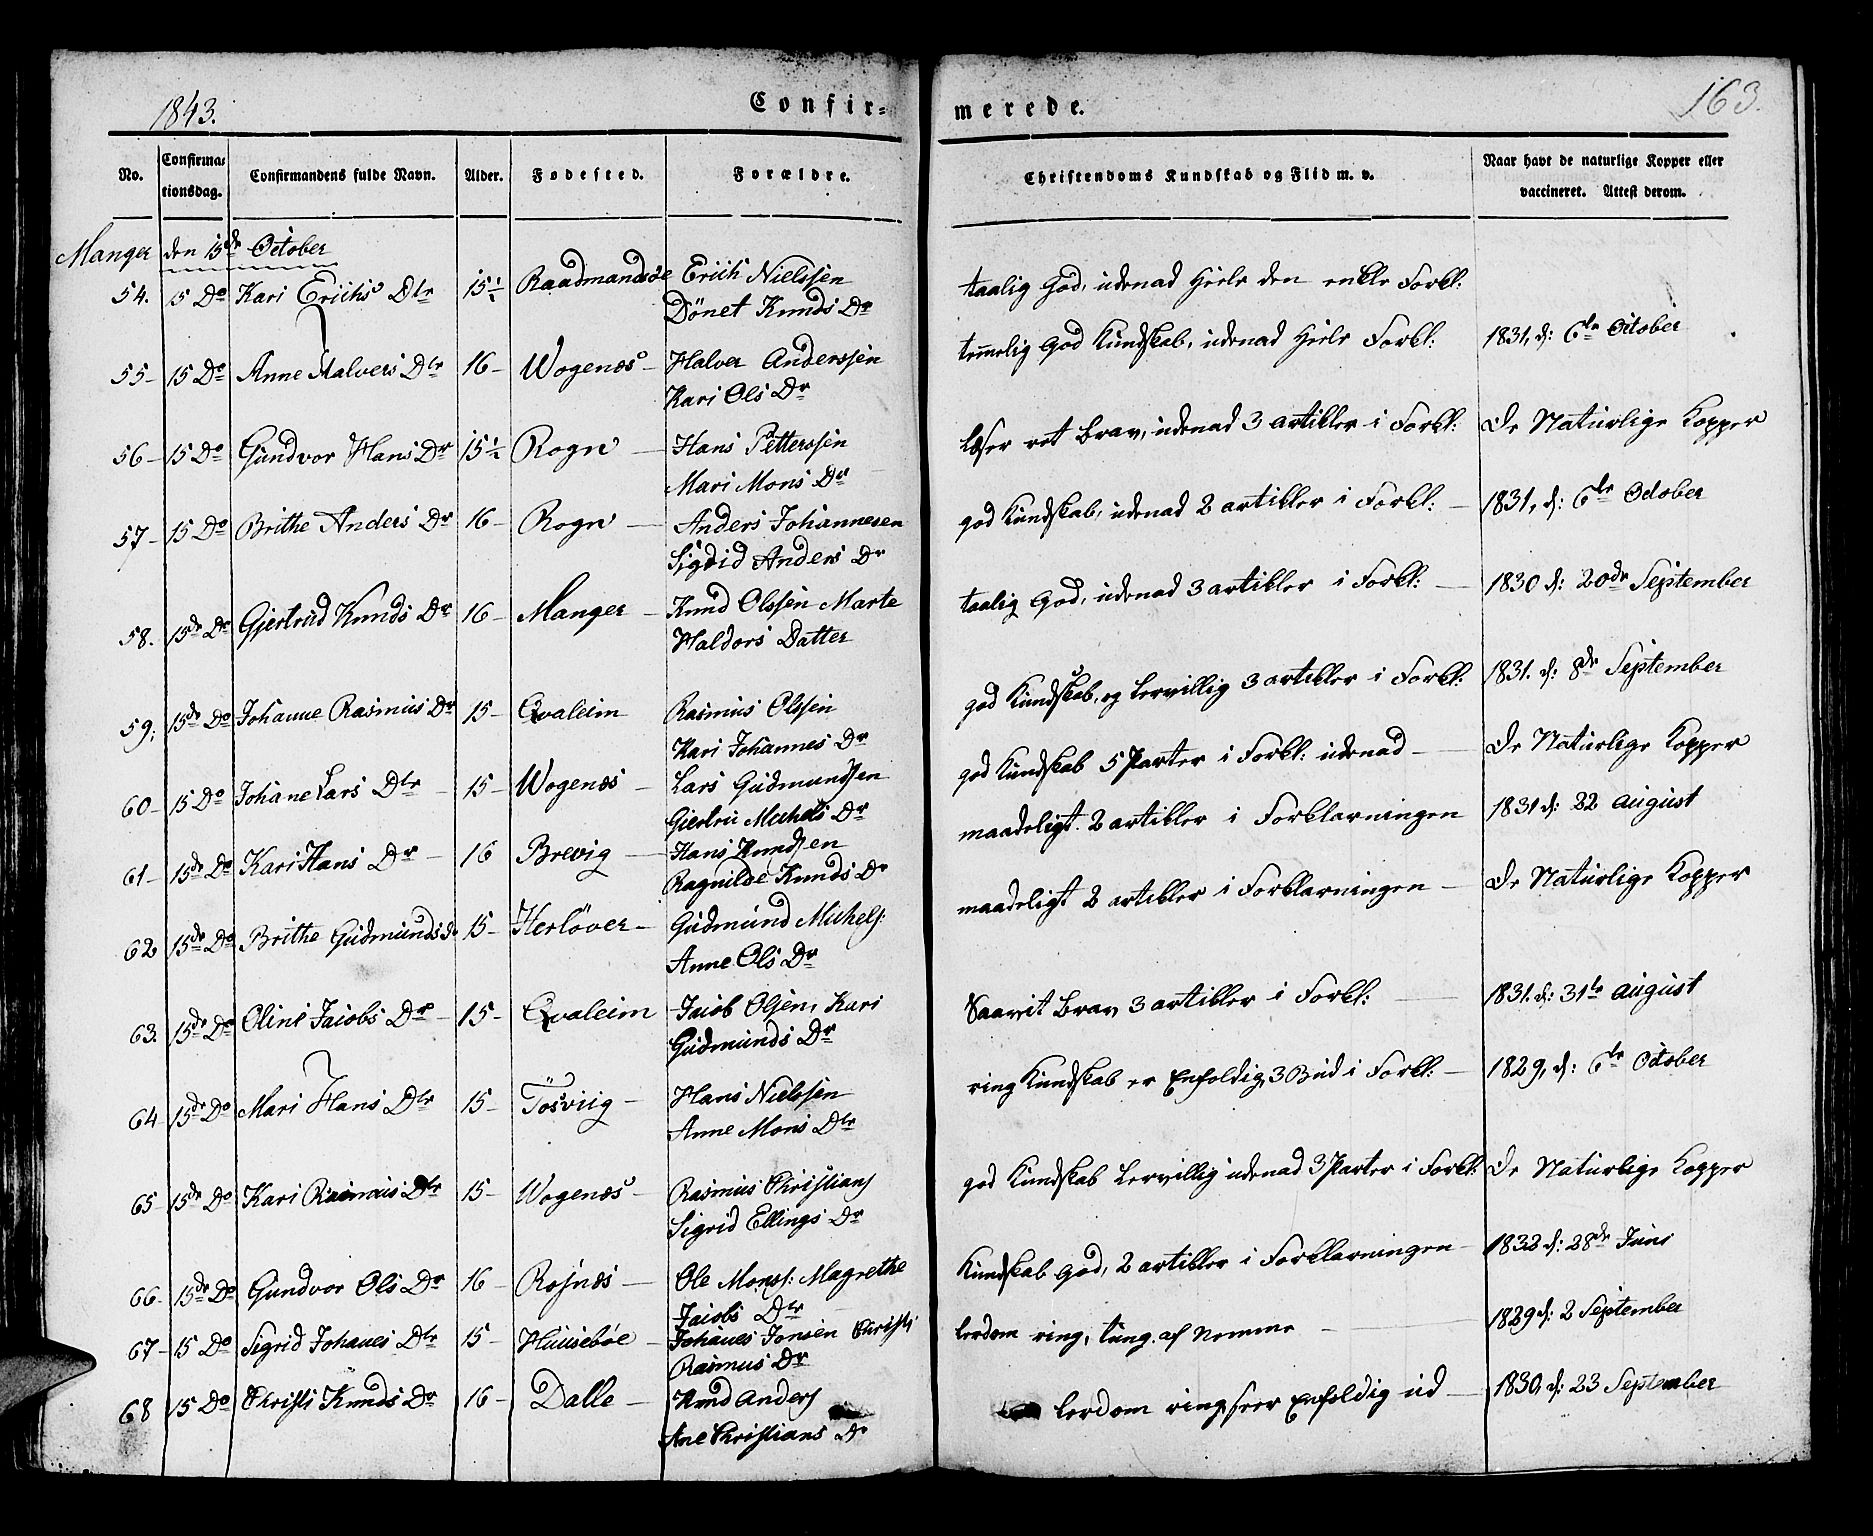 1843.
Confir-
merede.
163.
No. Confirmationsdag. Confirmandens fulde Navn. Alder. Fødested. Forældre. Christendoms Kundskab og Flid m. v. Naar havt de naturlige Kopper eller vaccineret. Attest derom.
Manger den 15de October
54. 15 Do Kari Erichs Dtr 15½ Raadmandsøe Erich Nielssen taalig God, udenad Hiele den enkle Forkl:
Dönet Knuds Dr
55 - 15 Do Anne Halvers Dtr 16 - Wogenæs - Halver Anderssen temelig God Kundskab, udenad Hiele Forkl: 1831, d: 6te October
Kari Ols Dr
56 - 15 Do Gundvor Hans Dr 15½ Rogn - Hans Petterssen Læser ret brav, udenad 3 artikler i Forkl: De Naturlige Kopper
Mari Mons Dr
57 - 15 Do Brithe Anders Dr 16 - Rogn - Anders Johannesen god Kundskab, udenad 2 artikler i Forkl: - 1831, d: 6te October
Sigdid Anders Dr
58. 15de Do Gjertrud Knuds Dr 16 - Manger - Knud Olssen Marte taalig God, udenad 3 artikler i Forkl: - 1830 d: 20de September
Haldors Datter
59; 15de Do Johanne Rasmus Dr 15 - Qvaleim Rasmus Olssen god Kundskab, og Lervillig 3 artikler i Forkl: 1831. d: 8de September
Kari Johannes Dr
60 - 15 Do Johane Lars Dtr - 15 - Wogenæs - Lars Gudmundsen god Kundskab 5 Parter i Forkl: udenad - De Naturlige Kopper
Giertru Michels Dr
61 - 15de Do Kari Hans Dr - 16 Brevig - Hans Knudsen maadeligt. 2 artikler i Forklarningen 1831 d: 22 august
Ragnilde Knuds Dr
62 15de Do Brithe Gudmunds D. 15 - Herlöver - Gudmund Michels: maadeligt 2 artikler i Forklarningen - De Naturlige Kopper
Anne Ols Dr
63. 15de Do Oline Jacobs Dr - 15 - Qvaleim Jacob Olsen, Kari Saavit brav 3 artikler i Forkl: 1831. d: 31te august
Gudmunds Dr
64 15de Do Mari Hans Dtr 15 - Tösviig - Hans Nielssen ring Kundskab er Enfoldig, 3 Bud i Forkl: - 1829, d: 6te October
Anne Mons Dtr
65 15de Do Kari Rasmus Dtr 15 - Wogenæs - Rasmus Christians god Kundskab Lervillig udenad 3 Parter i Forkl: De Naturlige Kopper
Sigrid Ellings Dr
66 - 15de Do Gundvor Ols Dr 16 - Rosnæs - Ole Mons: Magrethe Kundskab God, 2 artikler i Forklarningen - 1832 d: 28de Juni
Jacobs Dtr
67 - 15 Do Sigrid Johanes Dtr 15 - Huusebøe - Johanes Jonsen Christi Lerdom ring, tung af Nemme - 1829 d: 2 September
Rasmus Dr
68 15 Do Christi Knuds Dr 16 - Dalle - Knud Anders Lerdom ring, seer Enfoldig ud - 1830, d: 23 September
Ane Christians Dr